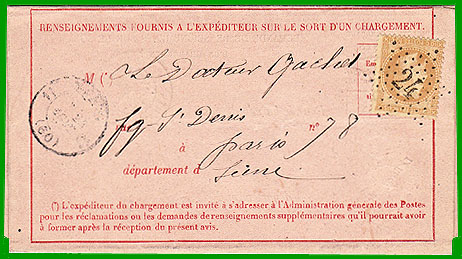 RENSEIGNEMENTS FOURNIS A L'EXPÉDITEUR SUR LE SORT D'UN CHARGEMENT.
M ( Le Docteur Gachet
24
fg St Denis n° 78
à Paris
département d Seine
(60)
(*) L'expéditeur du chargement est invité à s'adresser à l'Administration générale des Postes
pour les réclamations ou les demandes de renseignements supplémentaires qu'il pourrait avoir
à former après la réception du présent avis.